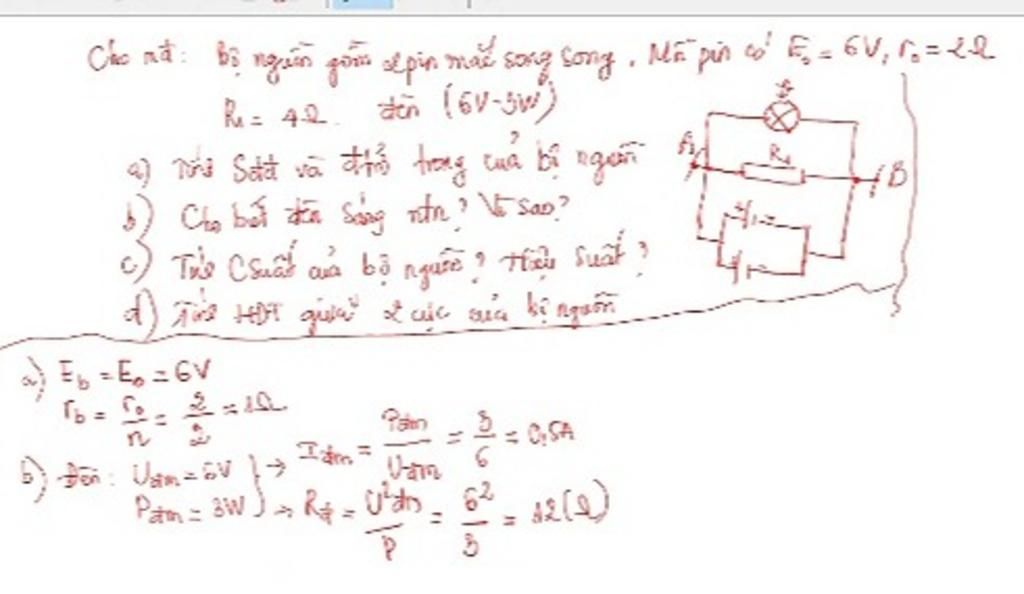 Cho mđ: bộ nguồn gồm 2 pin mắc song song. Mỗi pin có E₀ = 6V, r₀ = 2Ω
R₁ = 4Ω. đèn (6V-3W)
a) Tính Sđđ và đtrở trong của bộ nguồn
b) Cho biết đèn sáng ntn? Vì sao?
c) Tính CSuất của bộ nguồn? Hiệu suất?
d) Tính HĐT giữa 2 cực của bộ nguồn
Đ
A
R₁
B
a) E_b = E₀ = 6V
r_b = r₀/n = 2/2 = 1Ω
b) Đèn: Uđm = 6V } → Iđm = Pđm/Uđm = 3/6 = 0,5A
Pđm = 3W } → Rđ = U²đm/P = 6²/3 = 12(Ω)